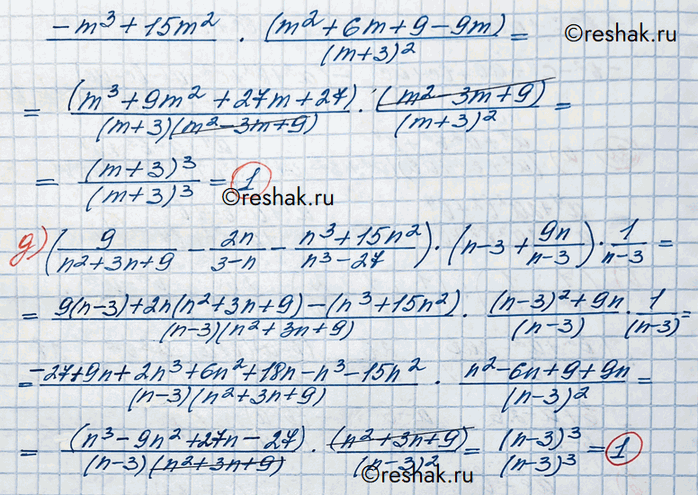 (-m³+15m²)/ · (m²+6m+9-9m)/(m+3)² = ©reshak.ru
= (m³+9m²+27m+27)/((m+3)(m²-3m+9)) · (m²-3m+9)/(m+3)² =
= (m+3)³/(m+3)³ = 1
©reshak.ru
g) (9/(n²+3n+9) - 2n/(3-n) - (n³+15n²)/(n³-27)) · (n-3+9n/(n-3)) · 1/(n-3) =
= (9(n-3)+2n(n²+3n+9)-(n³+15n²))/((n-3)(n²+3n+9)) · ((n-3)²+9n)/(n-3) · 1/(n-3) =
= (-27+9n+2n³+6n²+18n-n³-15n²)/((n-3)(n²+3n+9)) · (n²-6n+9+9n)/(n-3)² =
= (n³-9n²+27n-27)/((n-3)(n²+3n+9)) · (n²+3n+9)/(n-3)² = (n-3)³/(n-3)³ = 1
©reshak.ru